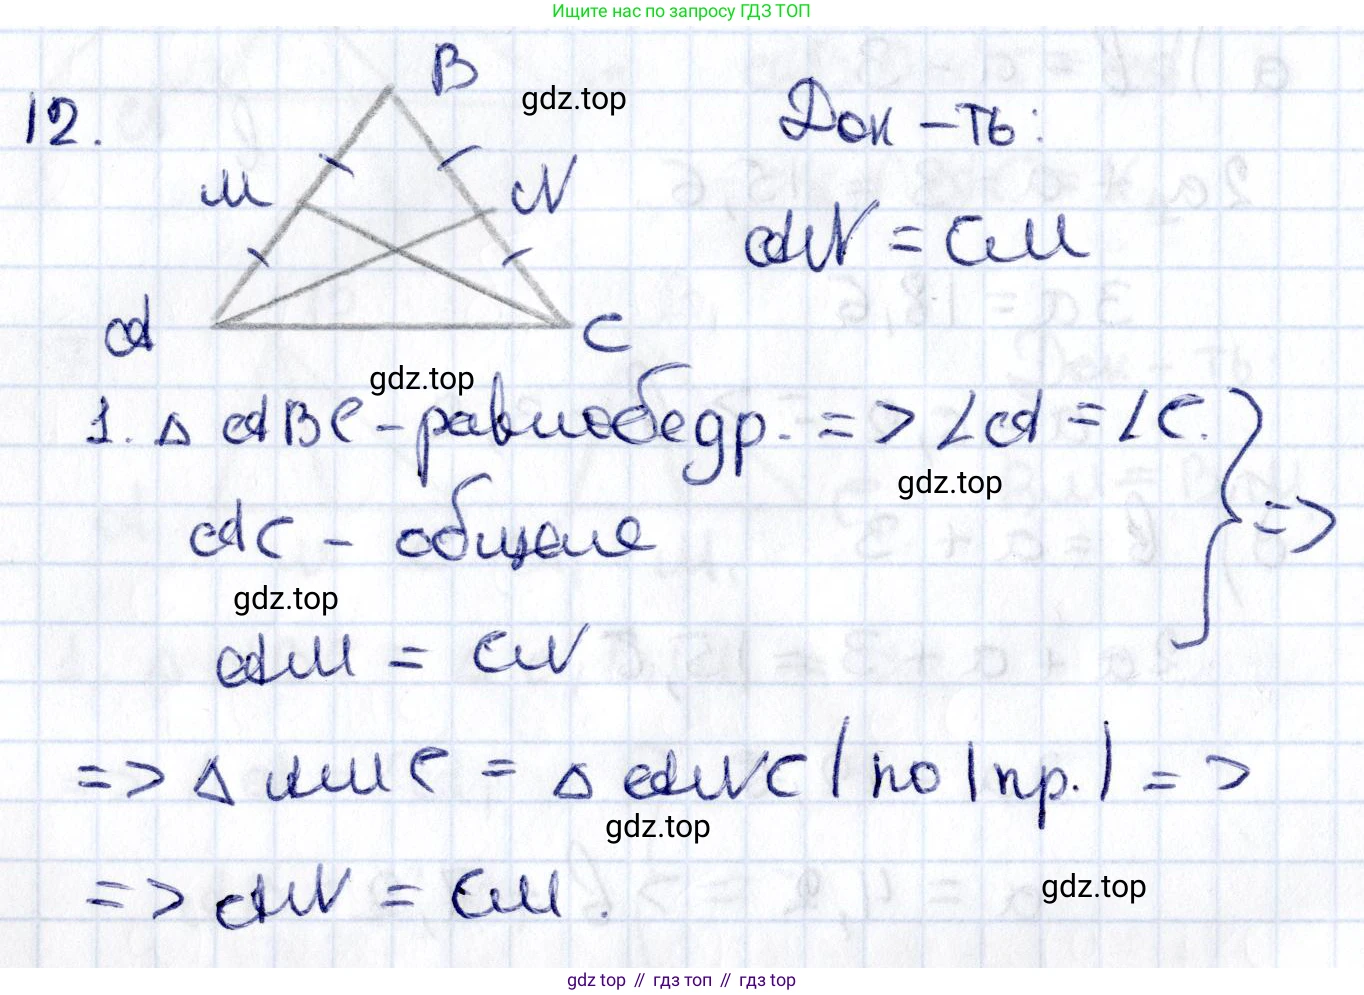 Ищите нас по запросу ГДЗ ТОП
12.
B
gdz.top
Док-ть:
M
N
AN = CM
A
C
gdz.top
1. △ ABC - равнобедр. => ∠A = ∠C. } =>
gdz.top
AC - общая
gdz.top
AM = CN
=> △ AMC = △ ANC (по I пр.) =>
gdz.top
=> AN = CM.
gdz.top
gdz top // гдз топ // гдз top